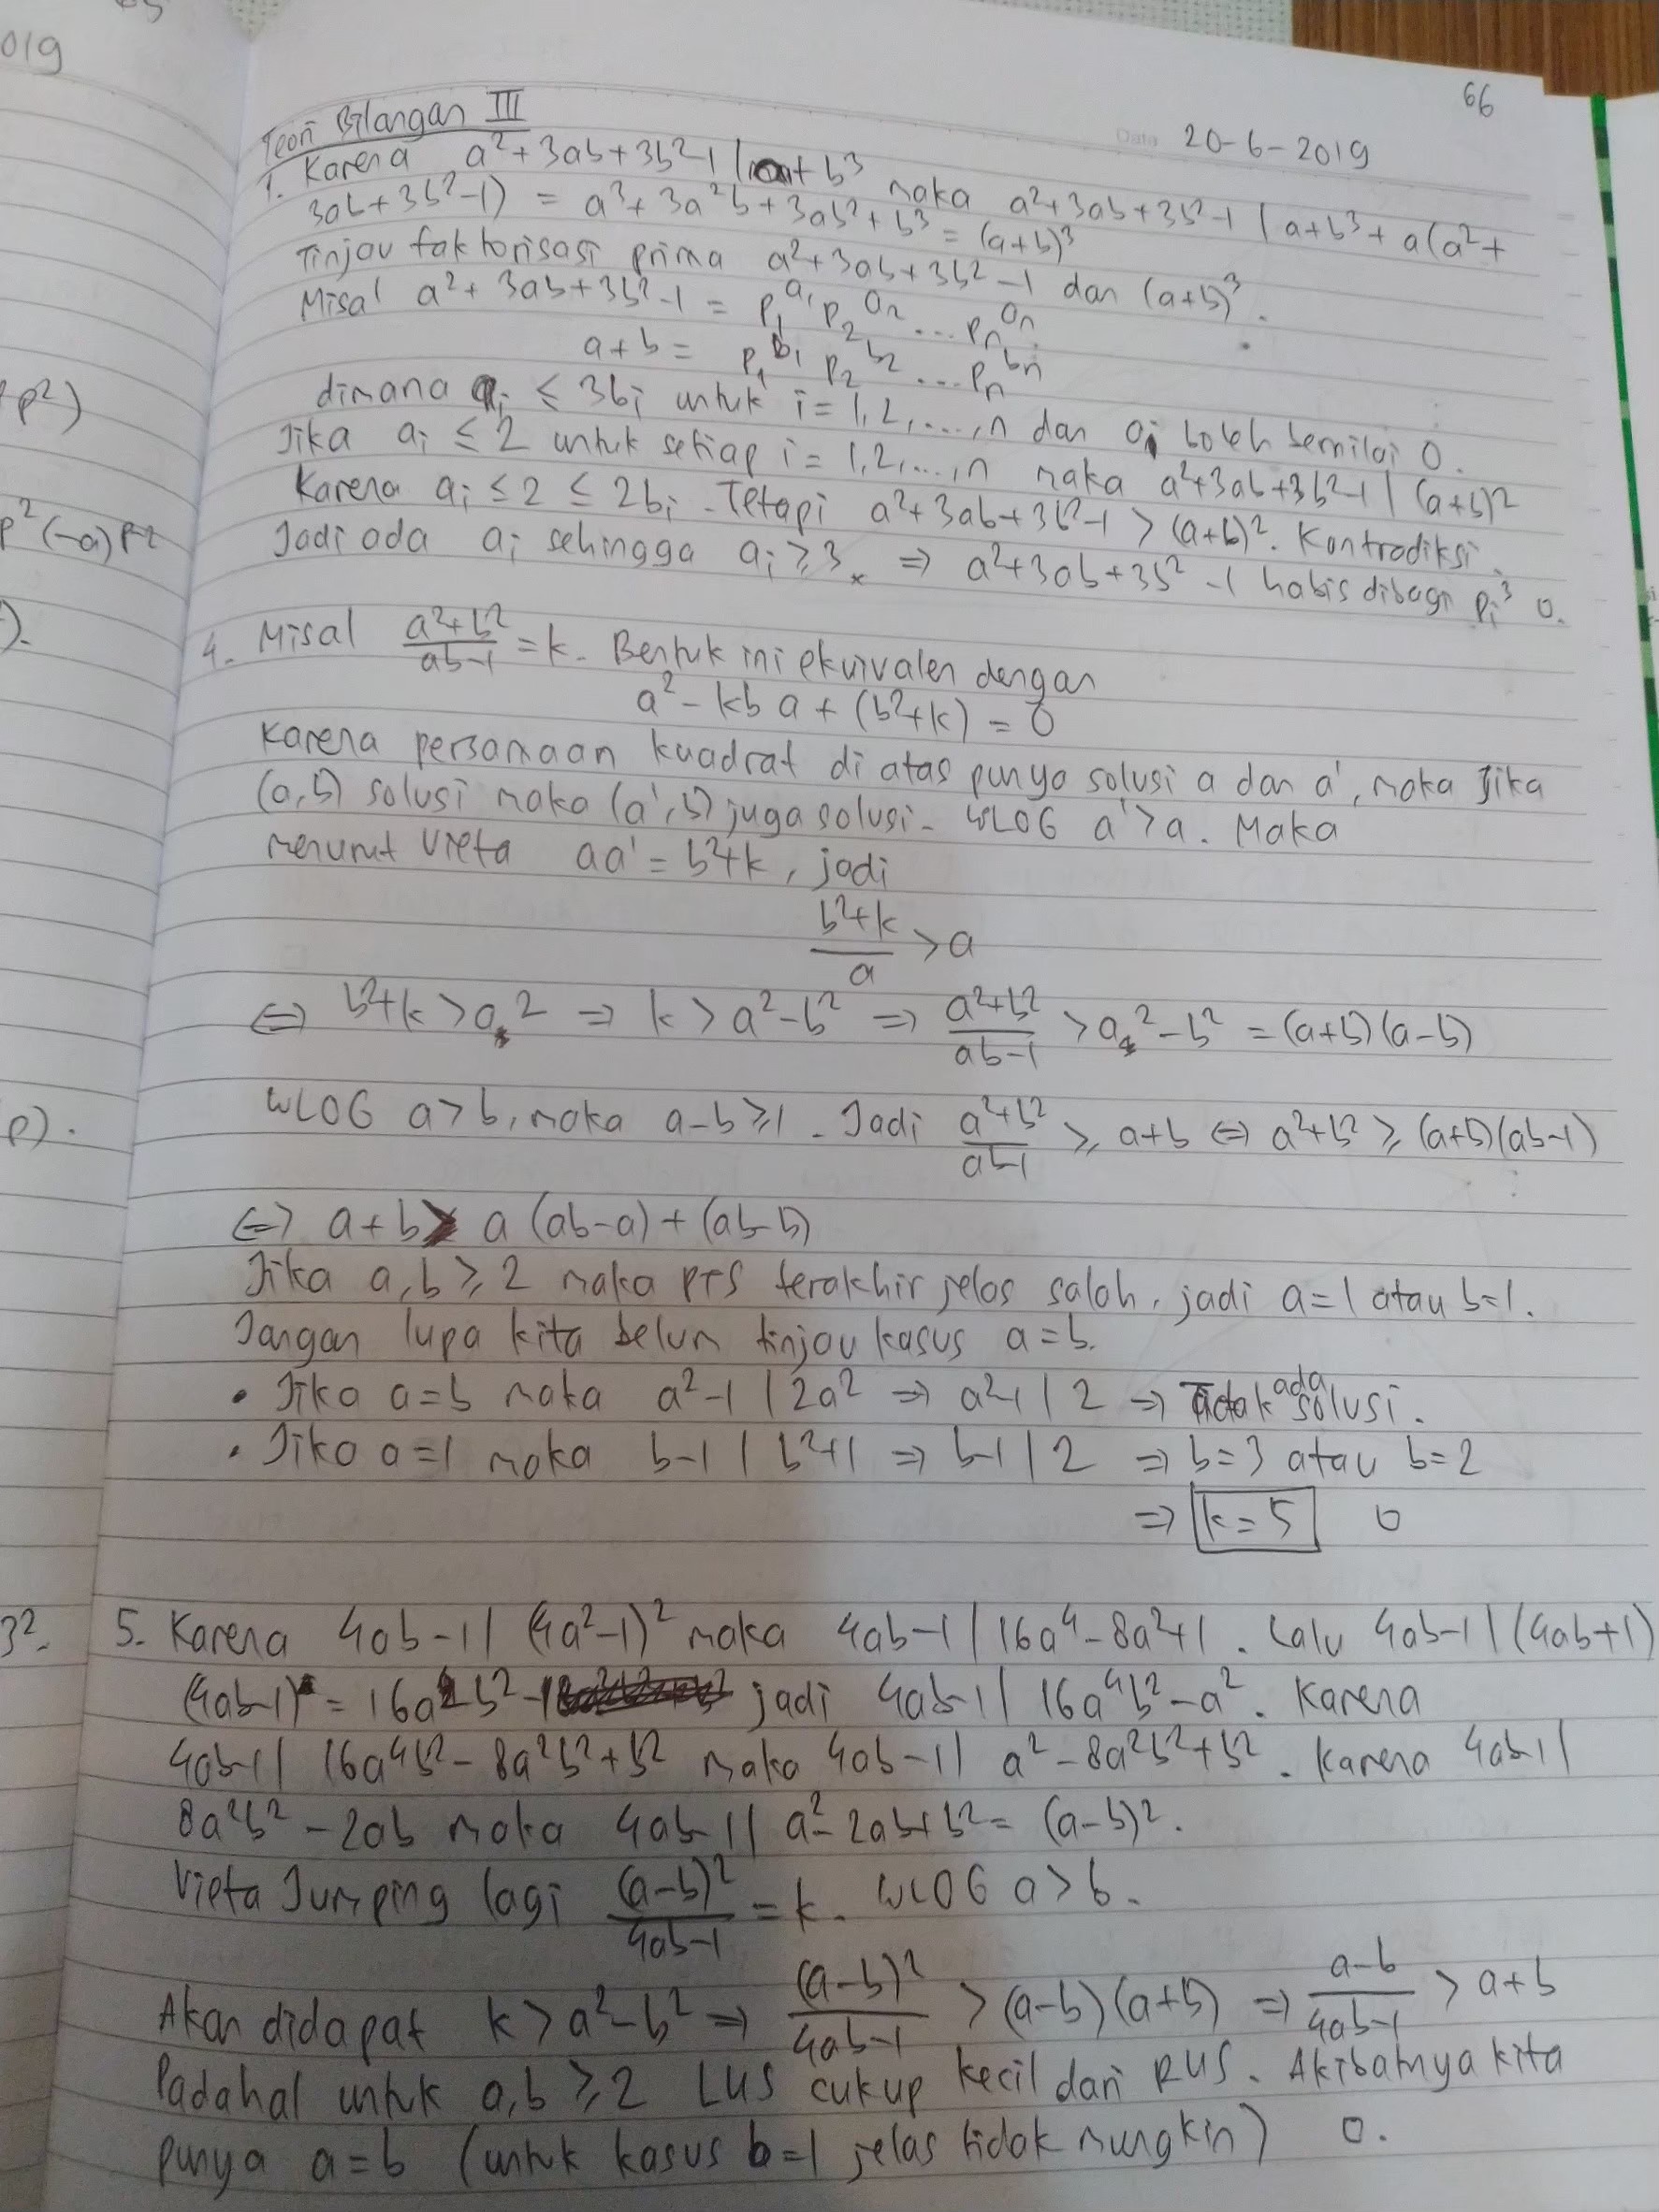 019
66
Data 20-6-2019
Teori Bilangan III
1. Karena a²+3ab+3b²-1 | a+b³ maka a²+3ab+3b²-1 | a+b³ + a(a²+
3ab+3b²-1) = a³+3a²b+3ab²+b³ = (a+b)³
Tinjau faktorisasi prima a²+3ab+3b²-1 dan (a+b)³.
Misal a²+3ab+3b²-1 = p₁^a₁ p₂^a₂ ... pₙ^aₙ
a+b = p₁^b₁ p₂^b₂ ... pₙ^bₙ
dimana aᵢ ≤ 3bᵢ untuk i=1,2,...,n dan aᵢ boleh bernilai 0.
Jika aᵢ ≤ 2 untuk setiap i=1,2,...,n maka a²+3ab+3b²-1 | (a+b)²
Karena aᵢ ≤ 2 ≤ 2bᵢ. Tetapi a²+3ab+3b²-1 > (a+b)². Kontradiksi.
Jadi ada aᵢ sehingga aᵢ ≥ 3. ⇒ a²+3ab+3b²-1 habis dibagi pᵢ³ 0.
4. Misal (a²+b²)/(ab-1) = k. Bentuk ini ekuivalen dengan
a² - kb a + (b²+k) = 0
Karena persamaan kuadrat di atas punya solusi a dan a', maka jika
(a,b) solusi maka (a',b) juga solusi. WLOG a' > a. Maka
menurut Vieta aa' = b²+k, jadi
(b²+k)/a > a
⇔ b²+k > a² ⇒ k > a²-b² ⇒ (a²+b²)/(ab-1) > a²-b² = (a+b)(a-b)
WLOG a > b, maka a-b ≥ 1. Jadi (a²+b²)/(ab-1) ≥ a+b ⇔ a²+b² ≥ (a+b)(ab-1)
⇔ a+b ≥ a(ab-a)+(ab-b)
Jika a,b ≥ 2 maka PTS terakhir jelas salah, jadi a=1 atau b=1.
Jangan lupa kita belum tinjau kasus a=b.
• Jika a=b maka a²-1 | 2a² ⇒ a²-1 | 2 ⇒ Tidak ada solusi.
• Jika a=1 maka b-1 | b²+1 ⇒ b-1 | 2 ⇒ b=3 atau b=2
⇒ k=5 0
5. Karena 4ab-1 | (4a²-1)² maka 4ab-1 | 16a⁴-8a²+1. Lalu 4ab-1 | (4ab+1)
(4ab-1) = 16a²b²-1 jadi 4ab-1 | 16a⁴b²-a². Karena
4ab-1 | 16a⁴b²-8a²b²+b² maka 4ab-1 | a²-8a²b²+b². Karena 4ab-1 |
8a²b²-2ab maka 4ab-1 | a²-2ab+b² = (a-b)².
Vieta Jumping lagi (a-b)²/(4ab-1) = k. WLOG a > b.
Akan didapat k > a²-b² ⇒ (a-b)²/(4ab-1) > (a-b)(a+b) ⇒ (a-b)/(4ab-1) > a+b
Padahal untuk a,b ≥ 2 LHS cukup kecil dari RHS. Akibatnya kita
punya a=b (untuk kasus b=1 jelas tidak mungkin) 0.